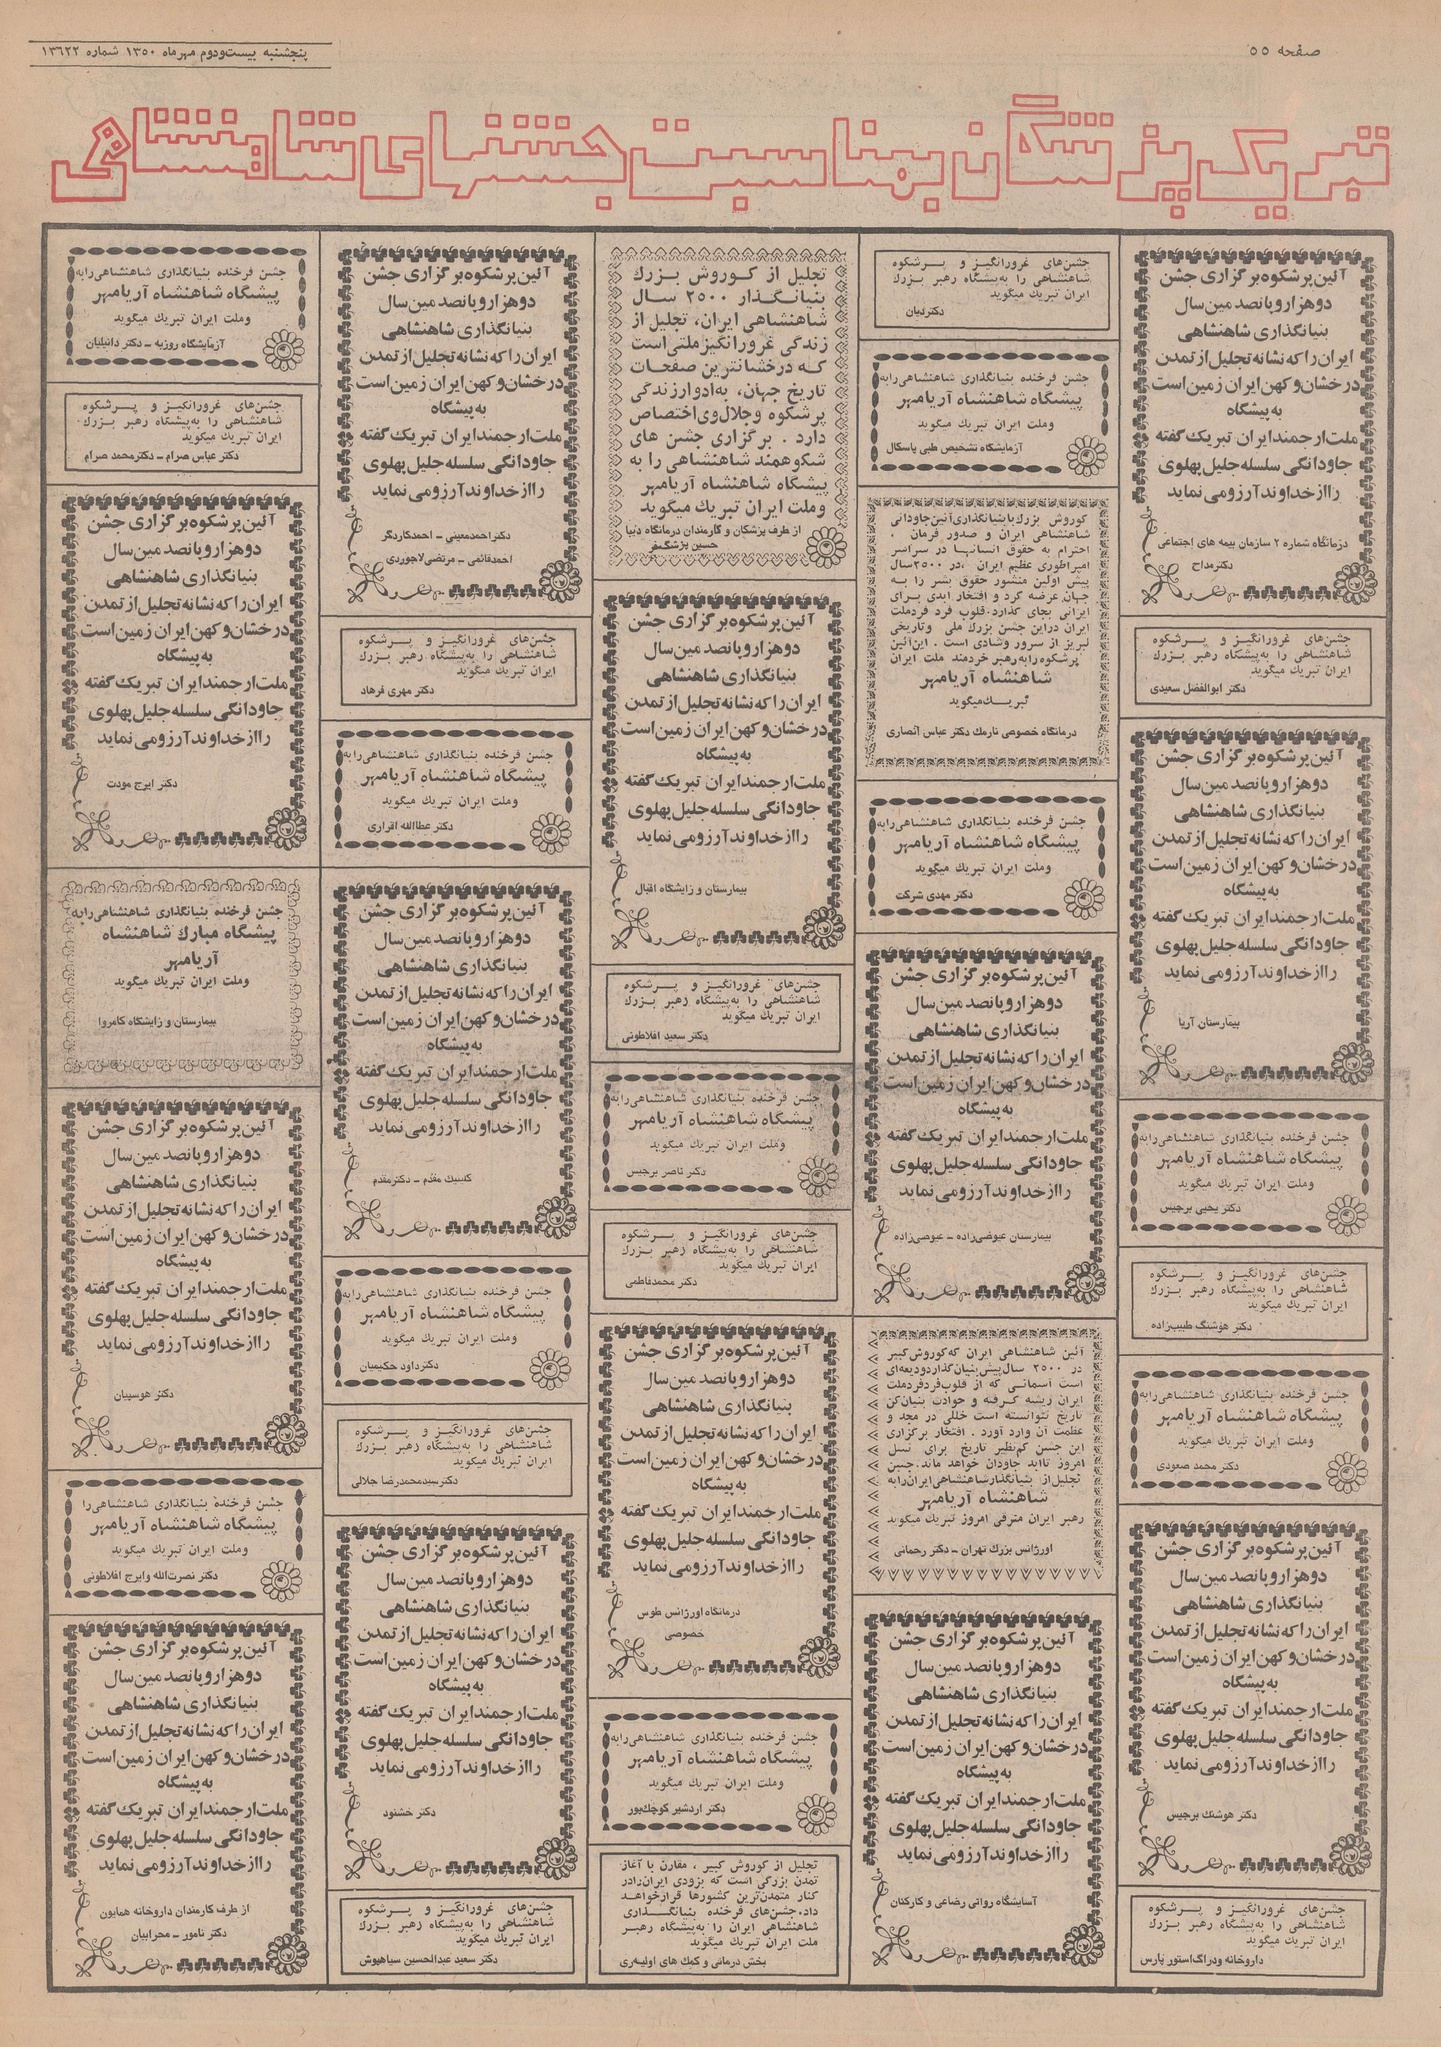 صفحه ۵۵
پنجشنبه بیست‌ودوم مهرماه ۱۳۵۰ شماره ۱۳۶۲۲
تبریک پزشگان بمناسبت جشنهای شاهنشاهی
آئین پرشکوه برگزاری جشن
دوهزار و پانصدمین سال
بنیانگذاری شاهنشاهی
ایران را که نشانه تجلیل از تمدن
درخشان و کهن ایران زمین است
به پیشگاه
ملت ارجمند ایران تبریك گفته
جاودانگی سلسله جلیل پهلوی
را از خداوند آرزو می نماید
درمانگاه شماره ۲ سازمان بیمه های اجتماعی
دکتر مداح
جشن‌های غرورانگیز و پرشکوه
شاهنشاهی را به پیشگاه رهبر بزرك
ایران تبریك میگوید
دکتر ابوالفضل سعیدی
آئین پرشکوه برگزاری جشن
دوهزار و پانصدمین سال
بنیانگذاری شاهنشاهی
ایران را که نشانه تجلیل از تمدن
درخشان و کهن ایران زمین است
به پیشگاه
ملت ارجمند ایران تبریك گفته
جاودانگی سلسله جلیل پهلوی
را از خداوند آرزو می نماید
بیمارستان آریا
جشن فرخنده بنیانگذاری شاهنشاهی را به
پیشگاه شاهنشاه آریامهر
و ملت ایران تبریك میگوید
دکتر یحیی برجیس
جشن‌های غرورانگیز و پرشکوه
شاهنشاهی را به پیشگاه رهبر بزرك
ایران تبریك میگوید
دکتر هوشنگ طبیب‌زاده
جشن فرخنده بنیانگذاری شاهنشاهی را به
پیشگاه شاهنشاه آریامهر
و ملت ایران تبریك میگوید
دکتر محمد صعودی
آئین پرشکوه برگزاری جشن
دوهزار و پانصدمین سال
بنیانگذاری شاهنشاهی
ایران را که نشانه تجلیل از تمدن
درخشان و کهن ایران زمین است
به پیشگاه
ملت ارجمند ایران تبریك گفته
جاودانگی سلسله جلیل پهلوی
را از خداوند آرزو می نماید
دکتر هوشنك برجیس
جشن‌های غرورانگیز و پرشکوه
شاهنشاهی را به پیشگاه رهبر بزرك
ایران تبریك میگوید
داروخانه ودراگ‌استور پارس
جشن‌های غرورانگیز و پرشکوه
شاهنشاهی را به پیشگاه رهبر بزرك
ایران تبریك میگوید
دکتر دیان
جشن فرخنده بنیانگذاری شاهنشاهی را به
پیشگاه شاهنشاه آریامهر
و ملت ایران تبریك میگوید
آزمایشگاه تشخیص طبی پاسکال
کوروش بزرك با بنیانگذاری آئین جاودانی
شاهنشاهی ایران و صدور فرمان
احترام به حقوق انسانها در سراسر
امپراطوری عظیم ایران ، در ۲۵۰۰ سال
پیش اولین منشور حقوق بشر را به
جهان عرضه کرد و افتخار ابدی برای
ایرانی بجای گذارد. قلوب فرد فرد ملت
ایران در این جشن بزرك ملی و تاریخی
لبریز از سرور و شادی است . این آئین
پرشکوه را به رهبر خردمند ملت ایران
شاهنشاه آریامهر
تبریك میگوید
درمانگاه خصوصی نارمك دکتر عباس انصاری
جشن فرخنده بنیانگذاری شاهنشاهی را به
پیشگاه شاهنشاه آریامهر
و ملت ایران تبریك میگوید
دکتر مهدی شرکت
آئین پرشکوه برگزاری جشن
دوهزار و پانصدمین سال
بنیانگذاری شاهنشاهی
ایران را که نشانه تجلیل از تمدن
درخشان و کهن ایران زمین است
به پیشگاه
ملت ارجمند ایران تبریك گفته
جاودانگی سلسله جلیل پهلوی
را از خداوند آرزو می نماید
بیمارستان عیوضی‌زاده - عیوضی‌زاده
آئین شاهنشاهی ایران که کوروش کبیر
در ۲۵۰۰ سال پیش بنیان گذارد ودیعه‌ای
است آسمانی که از قلوب فرد فرد ملت
ایران ریشه گرفته و حوادث بنیان‌کن
تاریخ نتوانسته است خللی در مجد و
عظمت آن وارد آورد . افتخار برگزاری
این جشن کم‌نظیر تاریخ برای نسل
امروز تاابد جاودان خواهد ماند. جشن
تجلیل از بنیانگذار شاهنشاهی ایران را به
شاهنشاه آریامهر
رهبر ایران مترقی امروز تبریك میگوید
اورژانس بزرك تهران - دکتر رحمانی
آئین پرشکوه برگزاری جشن
دوهزار و پانصدمین سال
بنیانگذاری شاهنشاهی
ایران را که نشانه تجلیل از تمدن
درخشان و کهن ایران زمین است
به پیشگاه
ملت ارجمند ایران تبریك گفته
جاودانگی سلسله جلیل پهلوی
را از خداوند آرزو می نماید
آسایشگاه روانی رضاعی و کارکنان
تجلیل از کوروش بزرك
بنیانگذار ۲۵۰۰ سال
شاهنشاهی ایران، تجلیل از
زندگی غرورانگیز ملتی است
که درخشانترین صفحات
تاریخ جهان، به ادوار زندگی
پرشکوه و جلال وی اختصاص
دارد . برگزاری جشن های
شکوهمند شاهنشاهی را به
پیشگاه شاهنشاه آریامهر
و ملت ایران تبریك میگوید
از طرف پزشکان و کارمندان درمانگاه دنیا
حسین پزشگمفر
آئین پرشکوه برگزاری جشن
دوهزار و پانصدمین سال
بنیانگذاری شاهنشاهی
ایران را که نشانه تجلیل از تمدن
درخشان و کهن ایران زمین است
به پیشگاه
ملت ارجمند ایران تبریك گفته
جاودانگی سلسله جلیل پهلوی
را از خداوند آرزو می نماید
بیمارستان و زایشگاه اقبال
جشن‌های غرورانگیز و پرشکوه
شاهنشاهی را به پیشگاه رهبر بزرك
ایران تبریك میگوید
دکتر سعید افلاطونی
جشن فرخنده بنیانگذاری شاهنشاهی را به
پیشگاه شاهنشاه آریامهر
و ملت ایران تبریك میگوید
دکتر ناصر برجیس
جشن‌های غرورانگیز و پرشکوه
شاهنشاهی را به پیشگاه رهبر بزرك
ایران تبریك میگوید
دکتر محمد فاطمی
آئین پرشکوه برگزاری جشن
دوهزار و پانصدمین سال
بنیانگذاری شاهنشاهی
ایران را که نشانه تجلیل از تمدن
درخشان و کهن ایران زمین است
به پیشگاه
ملت ارجمند ایران تبریك گفته
جاودانگی سلسله جلیل پهلوی
را از خداوند آرزو می نماید
درمانگاه اورژانس طوس
خصوصی
جشن فرخنده بنیانگذاری شاهنشاهی را به
پیشگاه شاهنشاه آریامهر
و ملت ایران تبریك میگوید
دکتر اردشیر کوچك‌پور
تجلیل از کوروش کبیر ، مقارن با آغاز
تمدن بزرگی است که بزودی ایران را در
کنار متمدن‌ترین کشورها قرار خواهد
داد. جشن‌های فرخنده بنیانگذاری
شاهنشاهی ایران را به پیشگاه رهبر
ملت ایران تبریك میگوید
بخش درمانی و کمك های اولیه‌ری
آئین پرشکوه برگزاری جشن
دوهزار و پانصدمین سال
بنیانگذاری شاهنشاهی
ایران را که نشانه تجلیل از تمدن
درخشان و کهن ایران زمین است
به پیشگاه
ملت ارجمند ایران تبریك گفته
جاودانگی سلسله جلیل پهلوی
را از خداوند آرزو می نماید
دکتر احمد معینی - احمد کاردگر
احمد قائمی - مرتضی لاجوردی
جشن‌های غرورانگیز و پرشکوه
شاهنشاهی را به پیشگاه رهبر بزرك
ایران تبریك میگوید
دکتر مهری فرهاد
جشن فرخنده بنیانگذاری شاهنشاهی را به
پیشگاه شاهنشاه آریامهر
و ملت ایران تبریك میگوید
دکتر عطاالله اقراری
آئین پرشکوه برگزاری جشن
دوهزار و پانصدمین سال
بنیانگذاری شاهنشاهی
ایران را که نشانه تجلیل از تمدن
درخشان و کهن ایران زمین است
به پیشگاه
ملت ارجمند ایران تبریك گفته
جاودانگی سلسله جلیل پهلوی
را از خداوند آرزو می نماید
کلینیك مقدم - دکتر مقدم
جشن فرخنده بنیانگذاری شاهنشاهی را به
پیشگاه شاهنشاه آریامهر
و ملت ایران تبریك میگوید
دکتر داود حکیمیان
جشن‌های غرورانگیز و پرشکوه
شاهنشاهی را به پیشگاه رهبر بزرك
ایران تبریك میگوید
دکتر سیدمحمدرضا جلالی
آئین پرشکوه برگزاری جشن
دوهزار و پانصدمین سال
بنیانگذاری شاهنشاهی
ایران را که نشانه تجلیل از تمدن
درخشان و کهن ایران زمین است
به پیشگاه
ملت ارجمند ایران تبریك گفته
جاودانگی سلسله جلیل پهلوی
را از خداوند آرزو می نماید
دکتر خشنود
جشن‌های غرورانگیز و پرشکوه
شاهنشاهی را به پیشگاه رهبر بزرك
ایران تبریك میگوید
دکتر سعید عبدالحسین سیاهپوش
جشن فرخنده بنیانگذاری شاهنشاهی را به
پیشگاه شاهنشاه آریامهر
و ملت ایران تبریك میگوید
آزمایشگاه روزبه - دکتر دانیلیان
جشن‌های غرورانگیز و پرشکوه
شاهنشاهی را به پیشگاه رهبر بزرك
ایران تبریك میگوید
دکتر عباس صرام - دکتر محمد صرام
آئین پرشکوه برگزاری جشن
دوهزار و پانصدمین سال
بنیانگذاری شاهنشاهی
ایران را که نشانه تجلیل از تمدن
درخشان و کهن ایران زمین است
به پیشگاه
ملت ارجمند ایران تبریك گفته
جاودانگی سلسله جلیل پهلوی
را از خداوند آرزو می نماید
دکتر ایرج مودت
جشن فرخنده بنیانگذاری شاهنشاهی را به
پیشگاه مبارك شاهنشاه
آریامهر
و ملت ایران تبریك میگوید
بیمارستان و زایشگاه کامروا
آئین پرشکوه برگزاری جشن
دوهزار و پانصدمین سال
بنیانگذاری شاهنشاهی
ایران را که نشانه تجلیل از تمدن
درخشان و کهن ایران زمین است
به پیشگاه
ملت ارجمند ایران تبریك گفته
جاودانگی سلسله جلیل پهلوی
را از خداوند آرزو می نماید
دکتر هوسپیان
جشن فرخنده بنیانگذاری شاهنشاهی را
پیشگاه شاهنشاه آریامهر
و ملت ایران تبریك میگوید
دکتر نصرت‌الله و ایرج افلاطونی
آئین پرشکوه برگزاری جشن
دوهزار و پانصدمین سال
بنیانگذاری شاهنشاهی
ایران را که نشانه تجلیل از تمدن
درخشان و کهن ایران زمین است
به پیشگاه
ملت ارجمند ایران تبریك گفته
جاودانگی سلسله جلیل پهلوی
را از خداوند آرزو می نماید
از طرف کارمندان داروخانه همایون
دکتر نامور - محرابیان